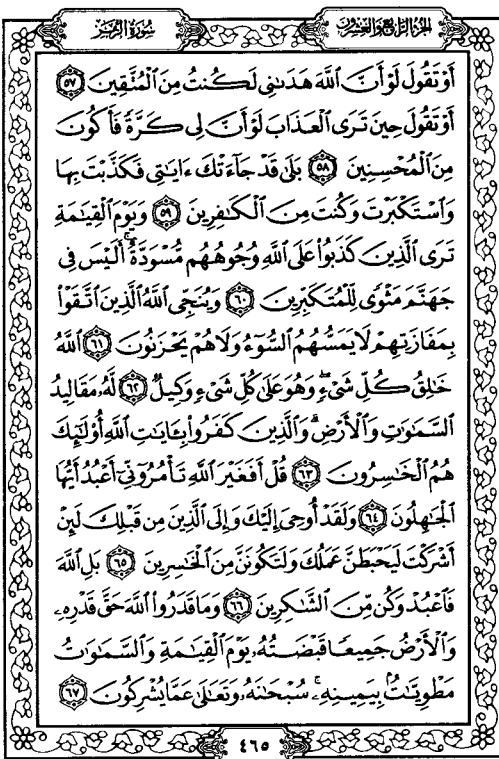 سُورَةُ الزُّمَرِ
الجُزْءُ الرَّابِعُ وَالعِشْرُونَ
أَوْ تَقُولَ لَوْ أَنَّ اللَّهَ هَدَىٰنِى لَكُنتُ مِنَ الْمُتَّقِينَ ٥٧
أَوْ تَقُولَ حِينَ تَرَى الْعَذَابَ لَوْ أَنَّ لِى كَرَّةً فَأَكُونَ
مِنَ الْمُحْسِنِينَ ٥٨ بَلَىٰ قَدْ جَآءَتْكَ ءَايَٰتِى فَكَذَّبْتَ بِهَا
وَاسْتَكْبَرْتَ وَكُنتَ مِنَ الْكَٰفِرِينَ ٥٩ وَيَوْمَ الْقِيَٰمَةِ
تَرَى الَّذِينَ كَذَبُوا۟ عَلَى اللَّهِ وُجُوهُهُم مُّسْوَدَّةٌ ۚ أَلَيْسَ فِى
جَهَنَّمَ مَثْوًى لِّلْمُتَكَبِّرِينَ ٦٠ وَيُنَجِّى اللَّهُ الَّذِينَ اتَّقَوْا۟
بِمَفَازَتِهِمْ لَا يَمَسُّهُمُ السُّوٓءُ وَلَا هُمْ يَحْزَنُونَ ٦١ اللَّهُ
خَٰلِقُ كُلِّ شَىْءٍ ۖ وَهُوَ عَلَىٰ كُلِّ شَىْءٍ وَكِيلٌ ٦٢ لَّهُۥ مَقَالِيدُ
السَّمَٰوَٰتِ وَالْأَرْضِ ۗ وَالَّذِينَ كَفَرُوا۟ بِـَٔايَٰتِ اللَّهِ أُو۟لَٰٓئِكَ
هُمُ الْخَٰسِرُونَ ٦٣ قُلْ أَفَغَيْرَ اللَّهِ تَأْمُرُوٓنِّىٓ أَعْبُدُ أَيُّهَا
الْجَٰهِلُونَ ٦٤ وَلَقَدْ أُوحِىَ إِلَيْكَ وَإِلَى الَّذِينَ مِن قَبْلِكَ لَئِنْ
أَشْرَكْتَ لَيَحْبَطَنَّ عَمَلُكَ وَلَتَكُونَنَّ مِنَ الْخَٰسِرِينَ ٦٥ بَلِ اللَّهَ
فَاعْبُدْ وَكُن مِّنَ الشَّٰكِرِينَ ٦٦ وَمَا قَدَرُوا۟ اللَّهَ حَقَّ قَدْرِهِۦ
وَالْأَرْضُ جَمِيعًا قَبْضَتُهُۥ يَوْمَ الْقِيَٰمَةِ وَالسَّمَٰوَٰتُ
مَطْوِيَّٰتٌۢ بِيَمِينِهِۦ ۚ سُبْحَٰنَهُۥ وَتَعَٰلَىٰ عَمَّا يُشْرِكُونَ ٦٧
٤٦٥